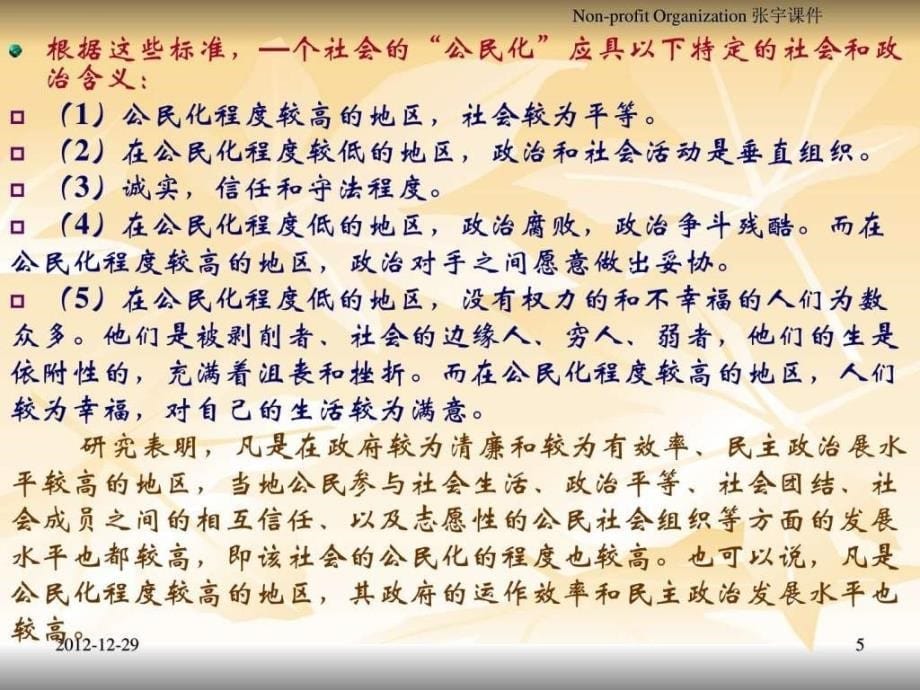 Non-profit Organization 张宇课件
根据这些标准，一个社会的“公民化”应具以下特定的社会和政
治含义：
（1）公民化程度较高的地区，社会较为平等。
（2）在公民化程度较低的地区，政治和社会活动是垂直组织。
（3）诚实，信任和守法程度。
（4）在公民化程度低的地区，政治腐败，政治争斗残酷。而在
公民化程度较高的地区，政治对手之间愿意做出妥协。
（5）在公民化程度低的地区，没有权力的和不幸福的人们为数
众多。他们是被剥削者、社会的边缘人、穷人、弱者，他们的生是
依附性的，充满着沮丧和挫折。而在公民化程度较高的地区，人们
较为幸福，对自己的生活较为满意。
研究表明，凡是在政府较为清廉和较为有效率、民主政治展水
平较高的地区，当地公民参与社会生活、政治平等、社会团结、社
会成员之间的相互信任、以及志愿性的公民社会组织等方面的发展
水平也都较高，即该社会的公民化的程度也较高。也可以说，凡是
公民化程度较高的地区，其政府的运作效率和民主政治发展水平也
较高。
2012-12-29
5